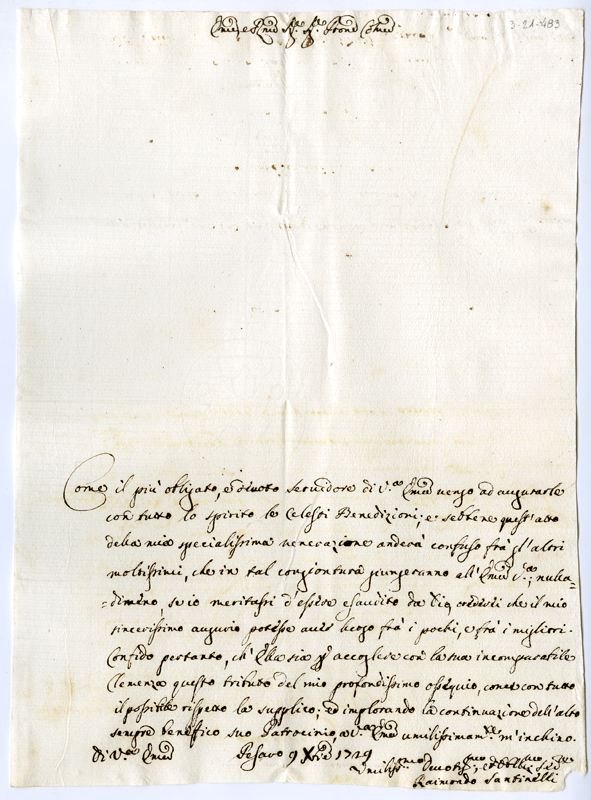 3-21-483
Em.e e R.mo Sig.r Sig.r Prone Colmo
Come il più obligato, e divoto servidore di V.ra Em.a vengo ad augurarle
con tutto lo spirito le Celesti Benedizioni; e sebbene quest'atto
della mia specialissima venerazione anderà confuso frà gl'altri
moltissimi, che in tal congiontura giungeranno all'Em.a V.ra; nulla=
=dimeno, se io meritassi d'essere esaudito da Dio, crederei che il mio
sincerissimo augurio potesse aver luogo frà i pochi, e frà i migliori.
Confido pertanto, ch'Ella sia p accogliere con la sua incomparabile
Clemenza questo tributo del mio profondissimo ossequio, come con tutto
il possibile rispetto la supplico; ed implorando la continuazione dell'alto
sempre benefico suo Patrocinio, a V.ra Em.a umilissimam.te m'inchino.
Di V.ra Em.a Pesaro 9 Xbre 1729
Umiliss.mo Devotis.mo et Obblig.mo Ser.re
Raimondo Santinelli